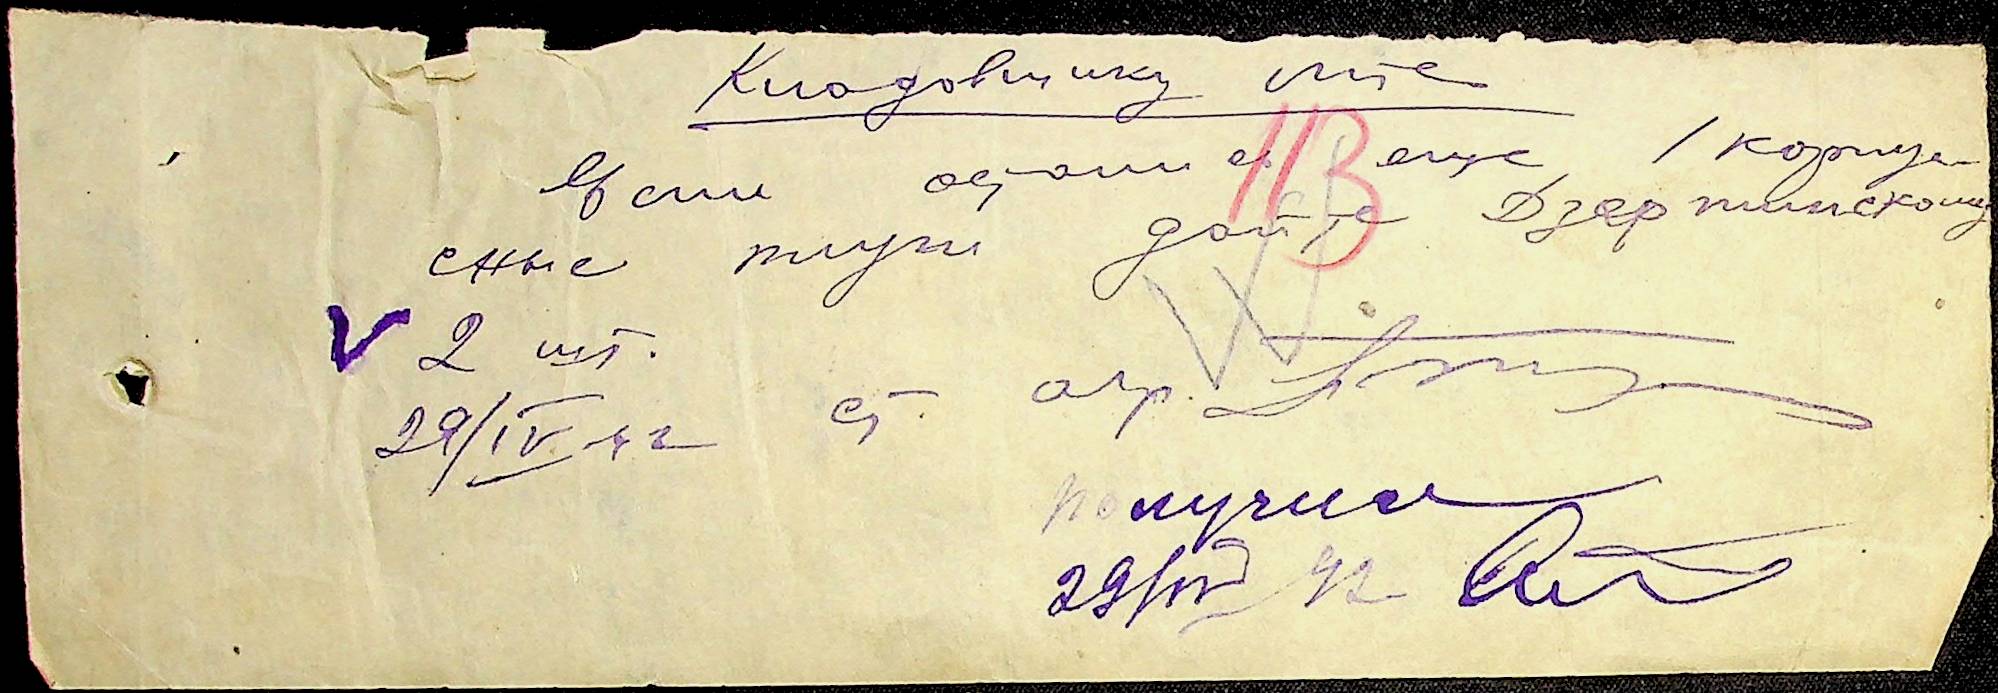 Кладовщику МТС
Если остались еще 1 корпу-
сные плуги дайте Дзержинскому
V 2 шт.
29/IV 42 ст. агр.
получил
29/IV 42